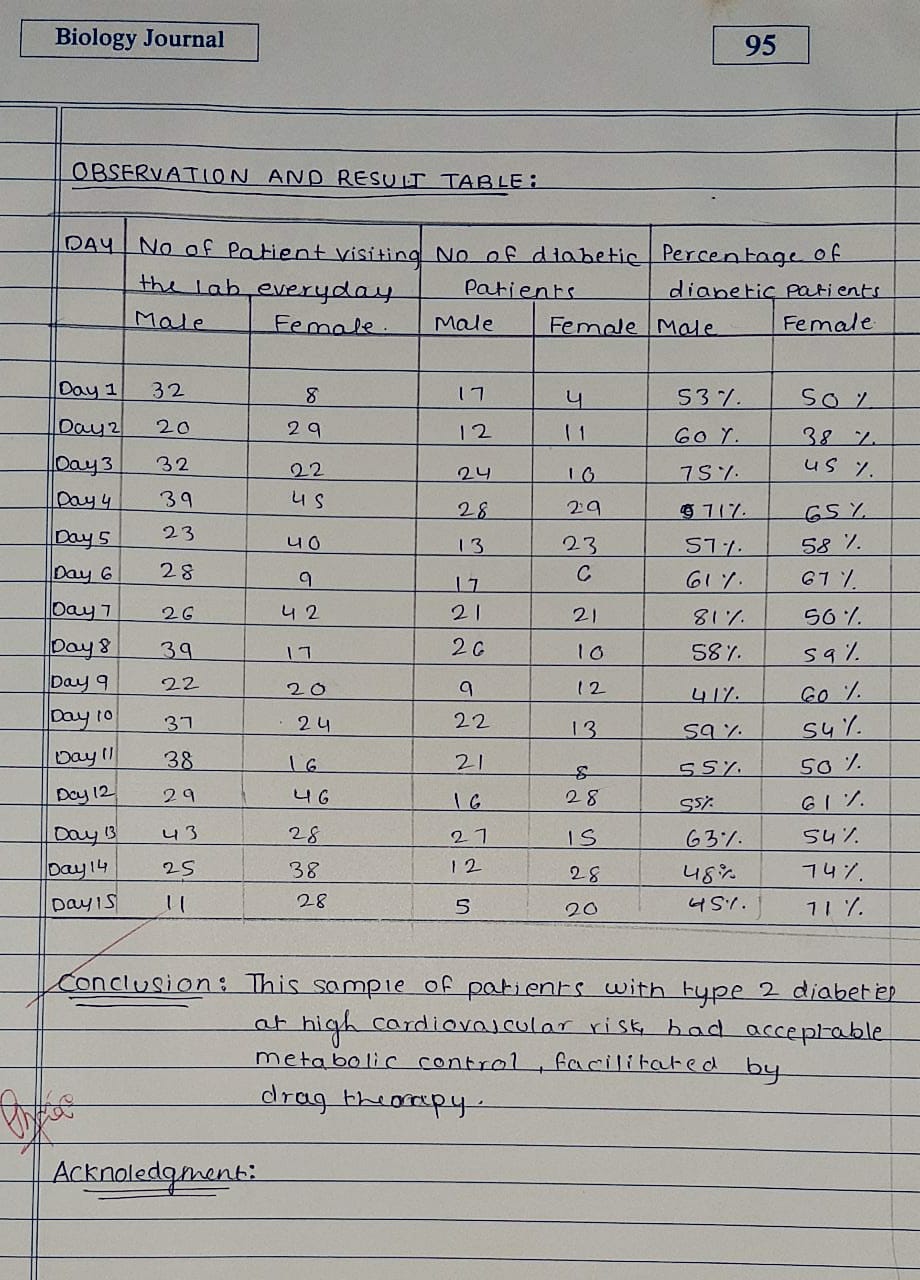 Biology Journal 95
OBSERVATION AND RESULT TABLE:
DAY No of Patient visiting No of diabetic Percentage of
the lab everyday Patients diabetic patients
Male Female. Male Female Male Female
Day 1 32 8 17 4 53 %. 50 %
Day 2 20 29 12 11 60 %. 38 %.
Day 3 32 22 24 10 75 %. 45 %.
Day 4 39 45 28 29 71 %. 65 %
Day 5 23 40 13 23 57 %. 58 %.
Day 6 28 9 17 6 61 %. 67 %
Day 7 26 42 21 21 81 %. 50 %.
Day 8 39 17 26 10 58 %. 59 %.
Day 9 22 20 9 12 41 %. 60 %.
Day 10 37 24 22 13 59 %. 54 %.
Day 11 38 16 21 8 55 %. 50 %.
Day 12 29 46 16 28 55% 61 %.
Day 13 43 28 27 15 63 %. 54 %.
Day 14 25 38 12 28 48% 74 %.
Day 15 11 28 5 20 45 %. 71 %.
Conclusion: This sample of patients with type 2 diabetes
at high cardiovascular risk had acceptable
metabolic control, facilitated by
drag therapy.
Acknoledgment: